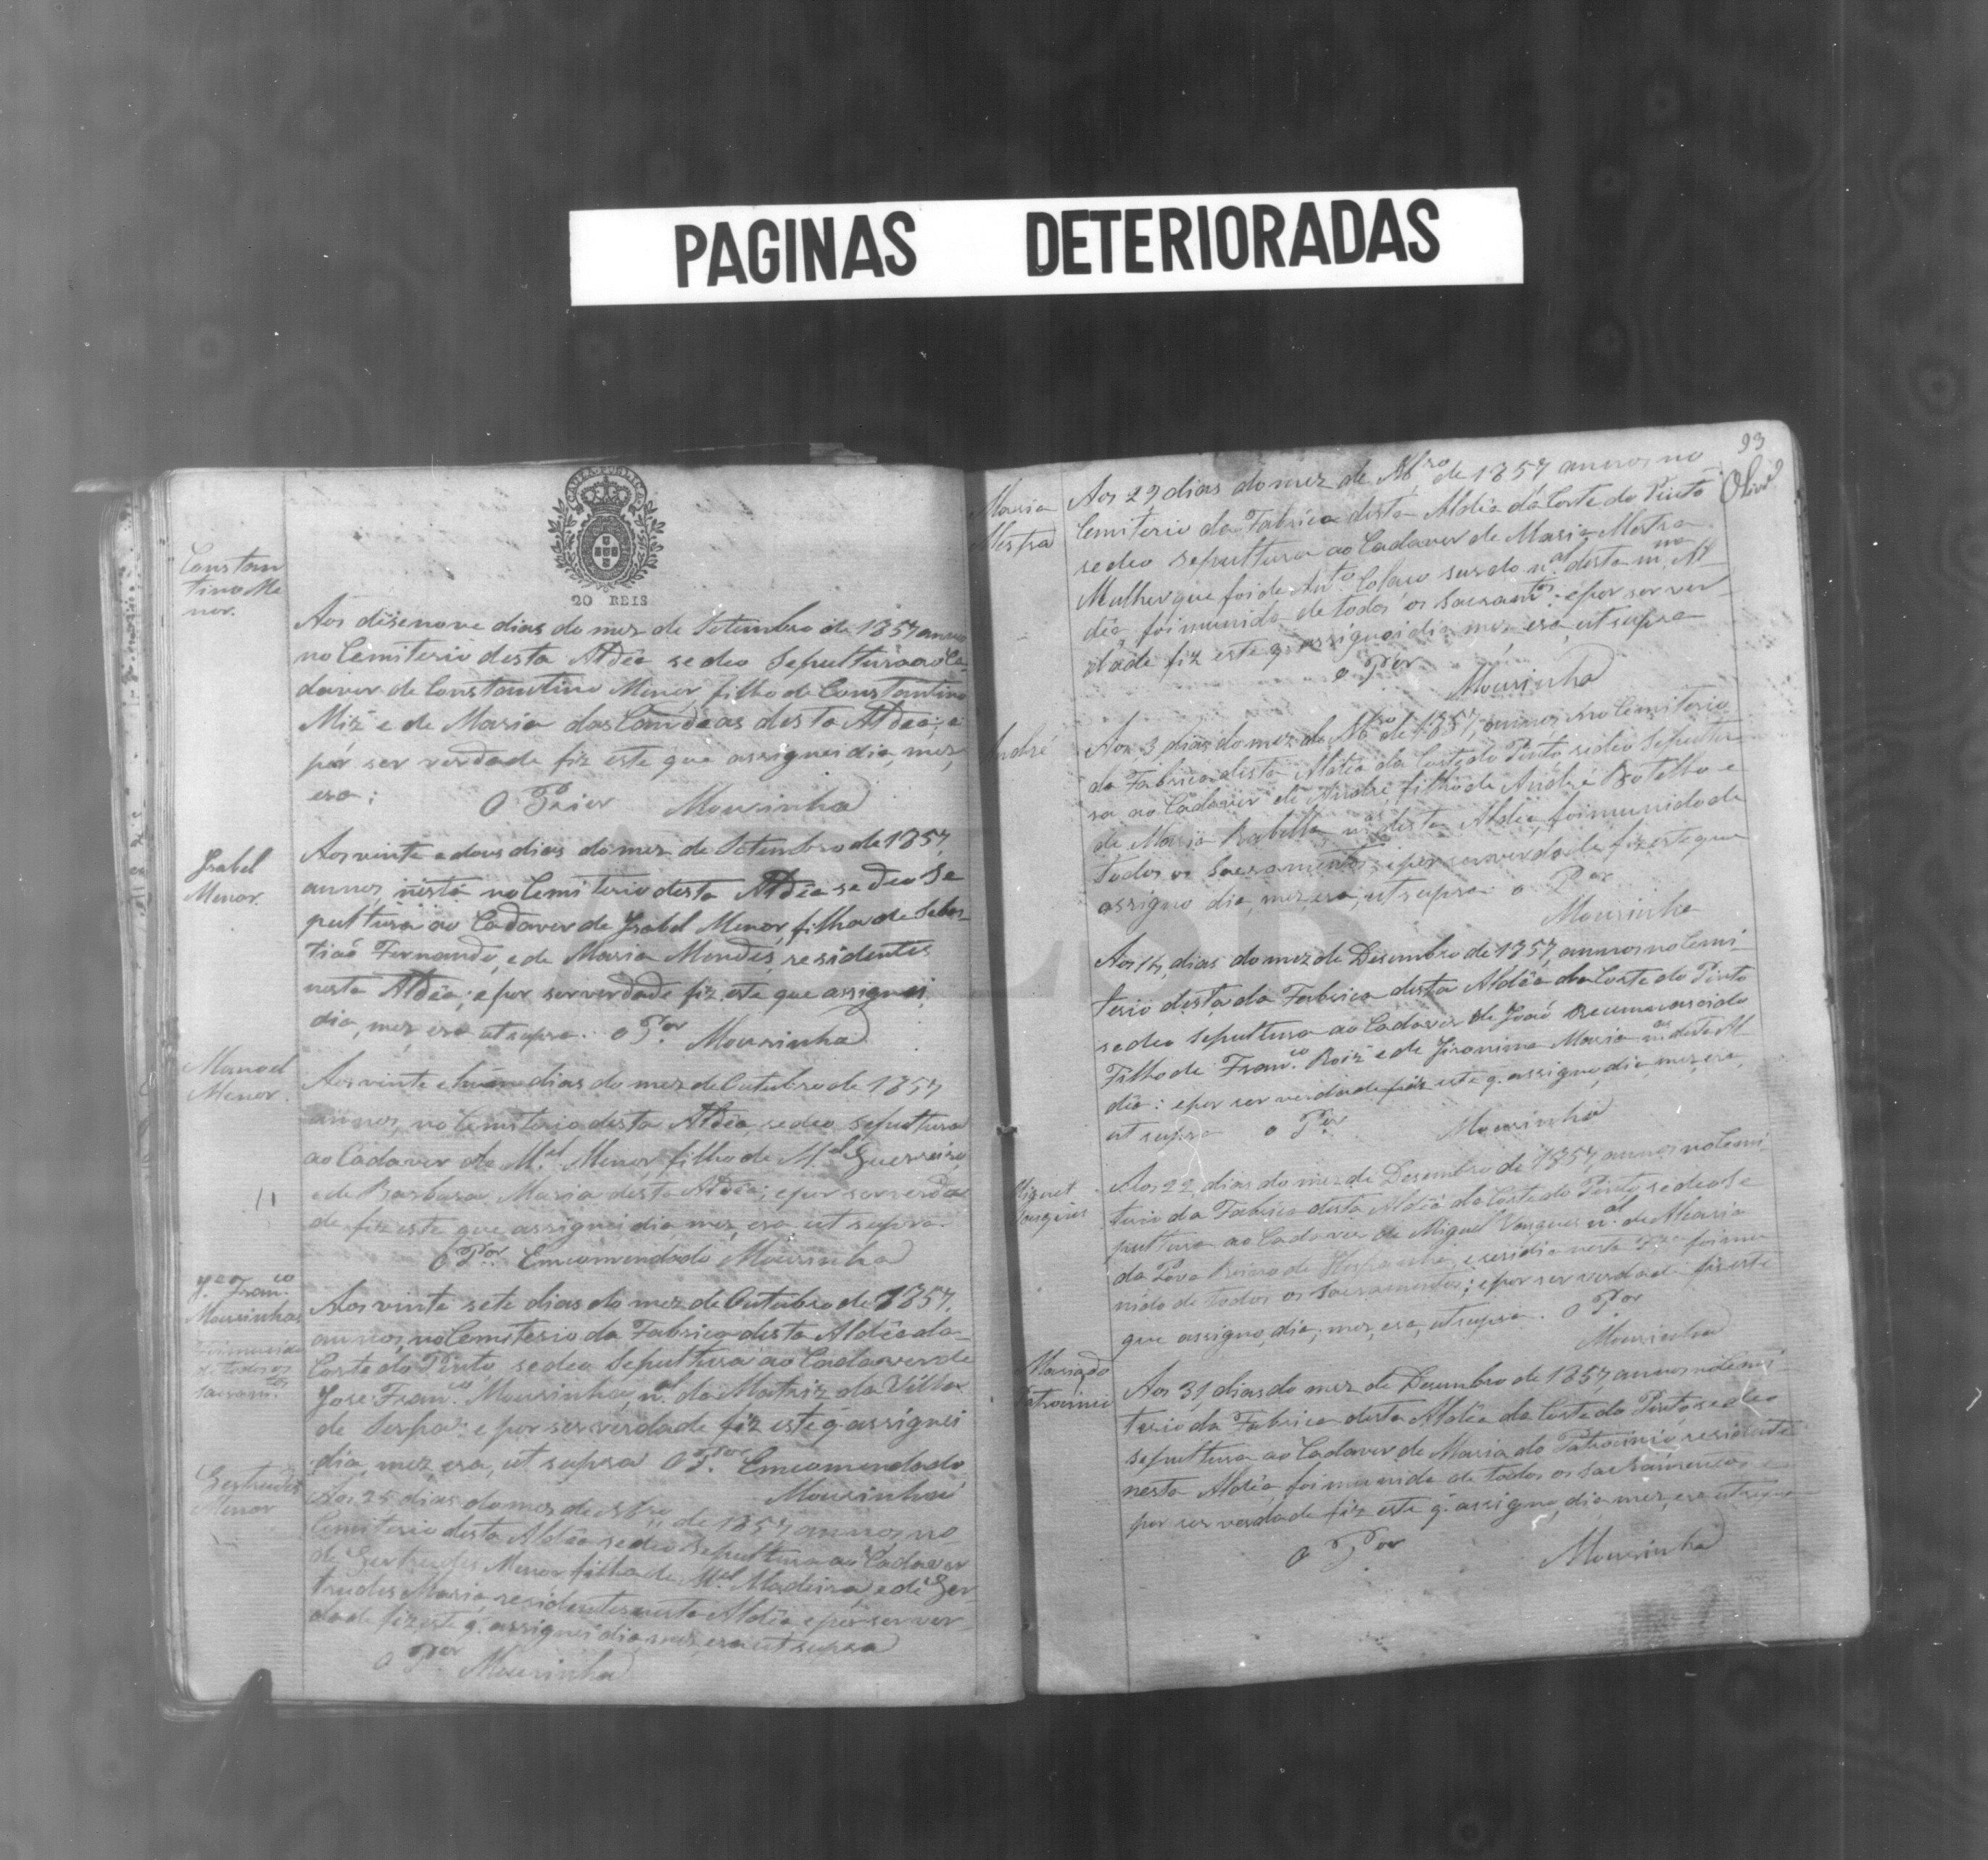 PAGINAS DETERIORADAS
CAUSA PUBLICA
20 REIS
Constan
tino Me
nor.
Aos disenove dias do mez de Setembro de 1857 annos
no Cemiterio desta Aldêa se deo Sepultura ao Ca-
daver de Constantino Menor filho de Constantino
Miz e de Maria das Candeas desta Aldea; e
por ser verdade fiz este que assignei dia, mez,
era;
O Prior Mousinho
Isabel
Menor.
Aos vinte e dous dias do mez de Setembro de 1857,
annos, nesta no Cemiterio desta Aldêa se deo Se
pultura ao Cadaver de Isabel Menor, filha de Sebas-
tião Fernande, e de Maria Mendes, residentes
nesta Aldêa; e por ser verdade fiz este que assignei
dia, mez, era ut supra. o P.or Mousinho
Manoel
Menor.
Aos vinte e hum dias do mez de Outubro de 1857
annos, no Cemiterio desta Aldêa, se deo sepultura
ao Cadaver de M.el Menor, filho de M.el Guerreiro,
e de Barbara Maria desta Aldêa; e por ser verda
de fiz este que assignei dia, mez, era ut supra.
O P.or Emcomendado Mousinho
Je Fran.co
Mousinho
foi munido
de todos os
Sacram.tos
Aos vinte sete dias do mez de Outubro de 1857,
annos, no Cemiterio da Fabrica desta Aldêa da
Corte do Pinto, se deo Sepultura ao Cadaver de
Jose Fran.co Mousinho, n.al da Matriz da Villa
de Serpa: e por ser verdade fiz este q assignei
dia, mez, era, ut supra O P.or Emcomendado
Mousinho
Gertrudes
Menor
Aos 25 dias do mez de 9bro, de 1857, annos, no
Cemiterio desta Aldêa se deo Sepultura ao Cadaver
de Gertrudes Menor filha de M.el Madeira, e de Ger-
trudes Maria, residentes nesta Aldêa, e por ser ver
dade fiz este q. assignei dia, mez, era ut supra
o P.or Mousinho
93
Maria
Mestra
Aos 29 dias do mez de de 1857 annos, no
Cemiterio da Fabrica desta Aldêa da Corte do Pinto
se deo sepultura ao Cadaver de Maria Mestra
Mulher que foi de Ant.o Colaço n.al desta m.ma Al
dêa, foi munida de todos os Sacram.tos; e por ser ver
dade fiz este q assignei dia, mez, era, ut supra
o P.or
Mousinho
André
Aos 3 dias do mez de de 1857, annos, no Cemiterio
da Fabrica desta Aldêa da Corte do Pinto, se deo Sepultu
ra ao Cadaver de André, filho de André Botelho e
de Maria desta Aldêa, foi munido de
todos os Sacramentos; e por ser verdade fiz este que
assigno dia, mez, era, ut supra o P.or
Mousinho
Aos 14, dias do mez de Desembro de 1857, annos no Cemi
terio desta da Fabrica desta Aldêa da Corte do Pinto
se deo Sepultura ao Cadaver de João
Filho de Fran.co Roiz e de Jeronima Maria n.as desta Al
dêa: e por ser verdade fiz este q. assigno, dia, mez, era,
ut supra o P.or
Mousinho
Miguel
Vasques
Aos 22 dias do mez de Desembro de 1857, annos no Cemi
terio da Fabrica desta Aldêa da Corte do Pinto se deo Se
pultura ao Cadaver de Miguel Vasques n.al de
da Reino de Hespanha, e residia nesta foi mu
nido de todos os Sacramentos; e por ser verdade fiz este
que assigno, dia, mez, era, ut supra. O P.or
Mousinho
Maria do
Patrocinio
Aos 31 dias do mez de Desembro de 1857, annos no Cemi
terio da Fabrica desta Aldêa da Corte do Pinto se deo
sepultura ao Cadaver de Maria do Patrocinio, residente
nesta Aldêa, foi munida de todos os Sacramentos e
por ser verdade fiz este q. assigno, dia, mez, era ut supra
O P.or
Mousinho